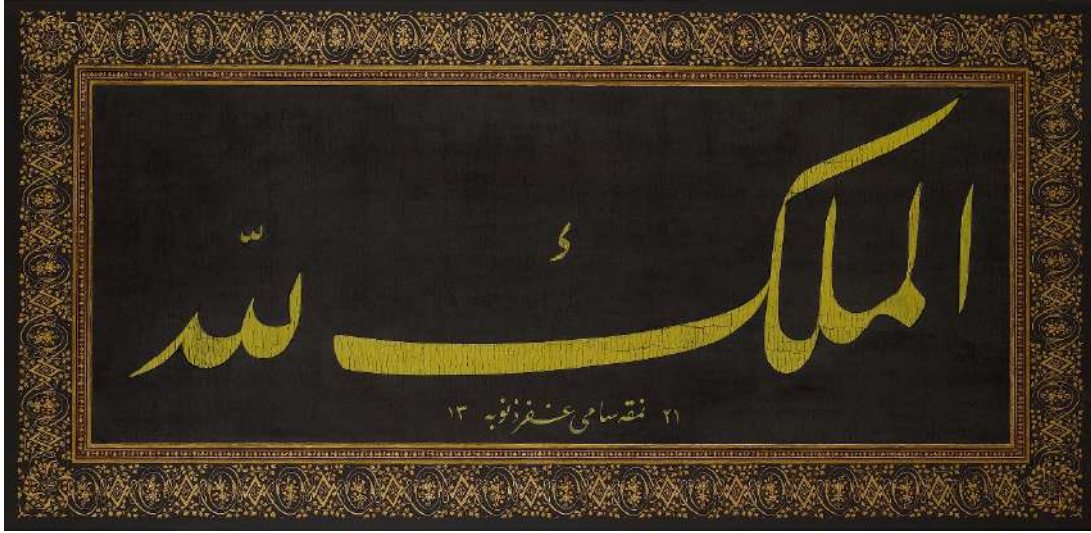 الملكُ للّه
٢١ نمقه سامي غفر ذنوبه ١٣